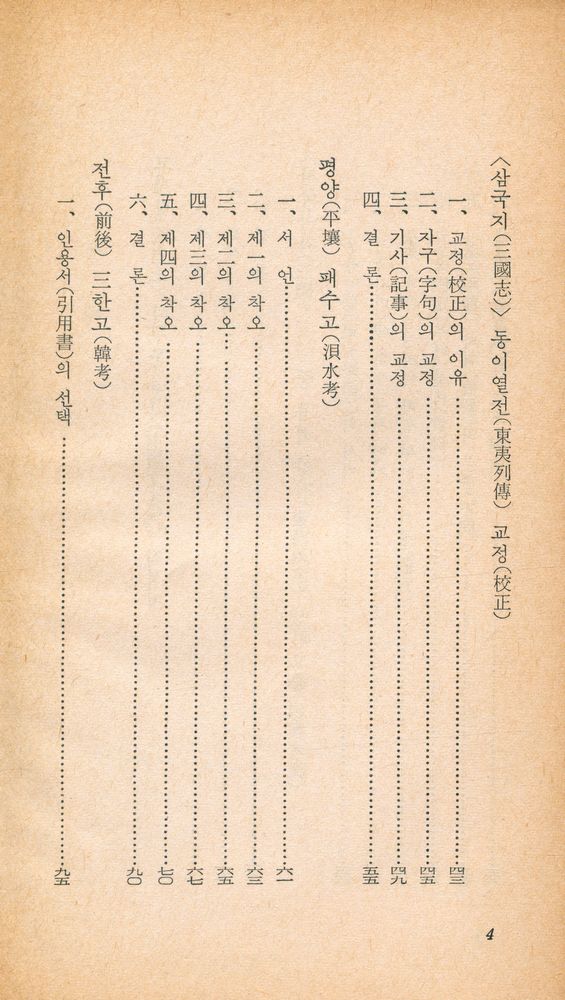 〈삼국지(三國志)〉 동이열전(東夷列傳) 교정(校正)
一、교정(校正)의 이유……四三
二、자구(字句)의 교정……四五
三、기사(記事)의 교정……四九
四、결 론……五五
평양(平壤) 패수고(浿水考)
一、서 언……六一
二、제一의 착오……六三
三、제二의 착오……六五
四、제三의 착오……六七
五、제四의 착오……七〇
六、결 론……九〇
전후(前後) 三한고(韓考)
一、인용서(引用書)의 선택……九五
4